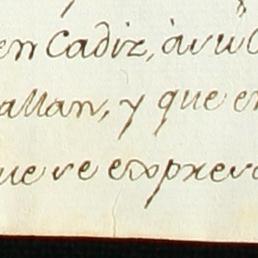 en Cadiz, à su
allan, y que e
que se expres